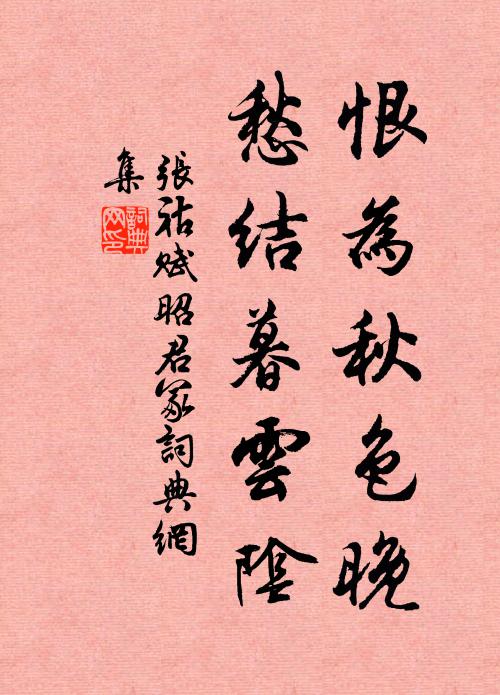 恨為秋色晚
愁結暮雲陰
張祜賦昭君冢詞典網
集
詞典網印